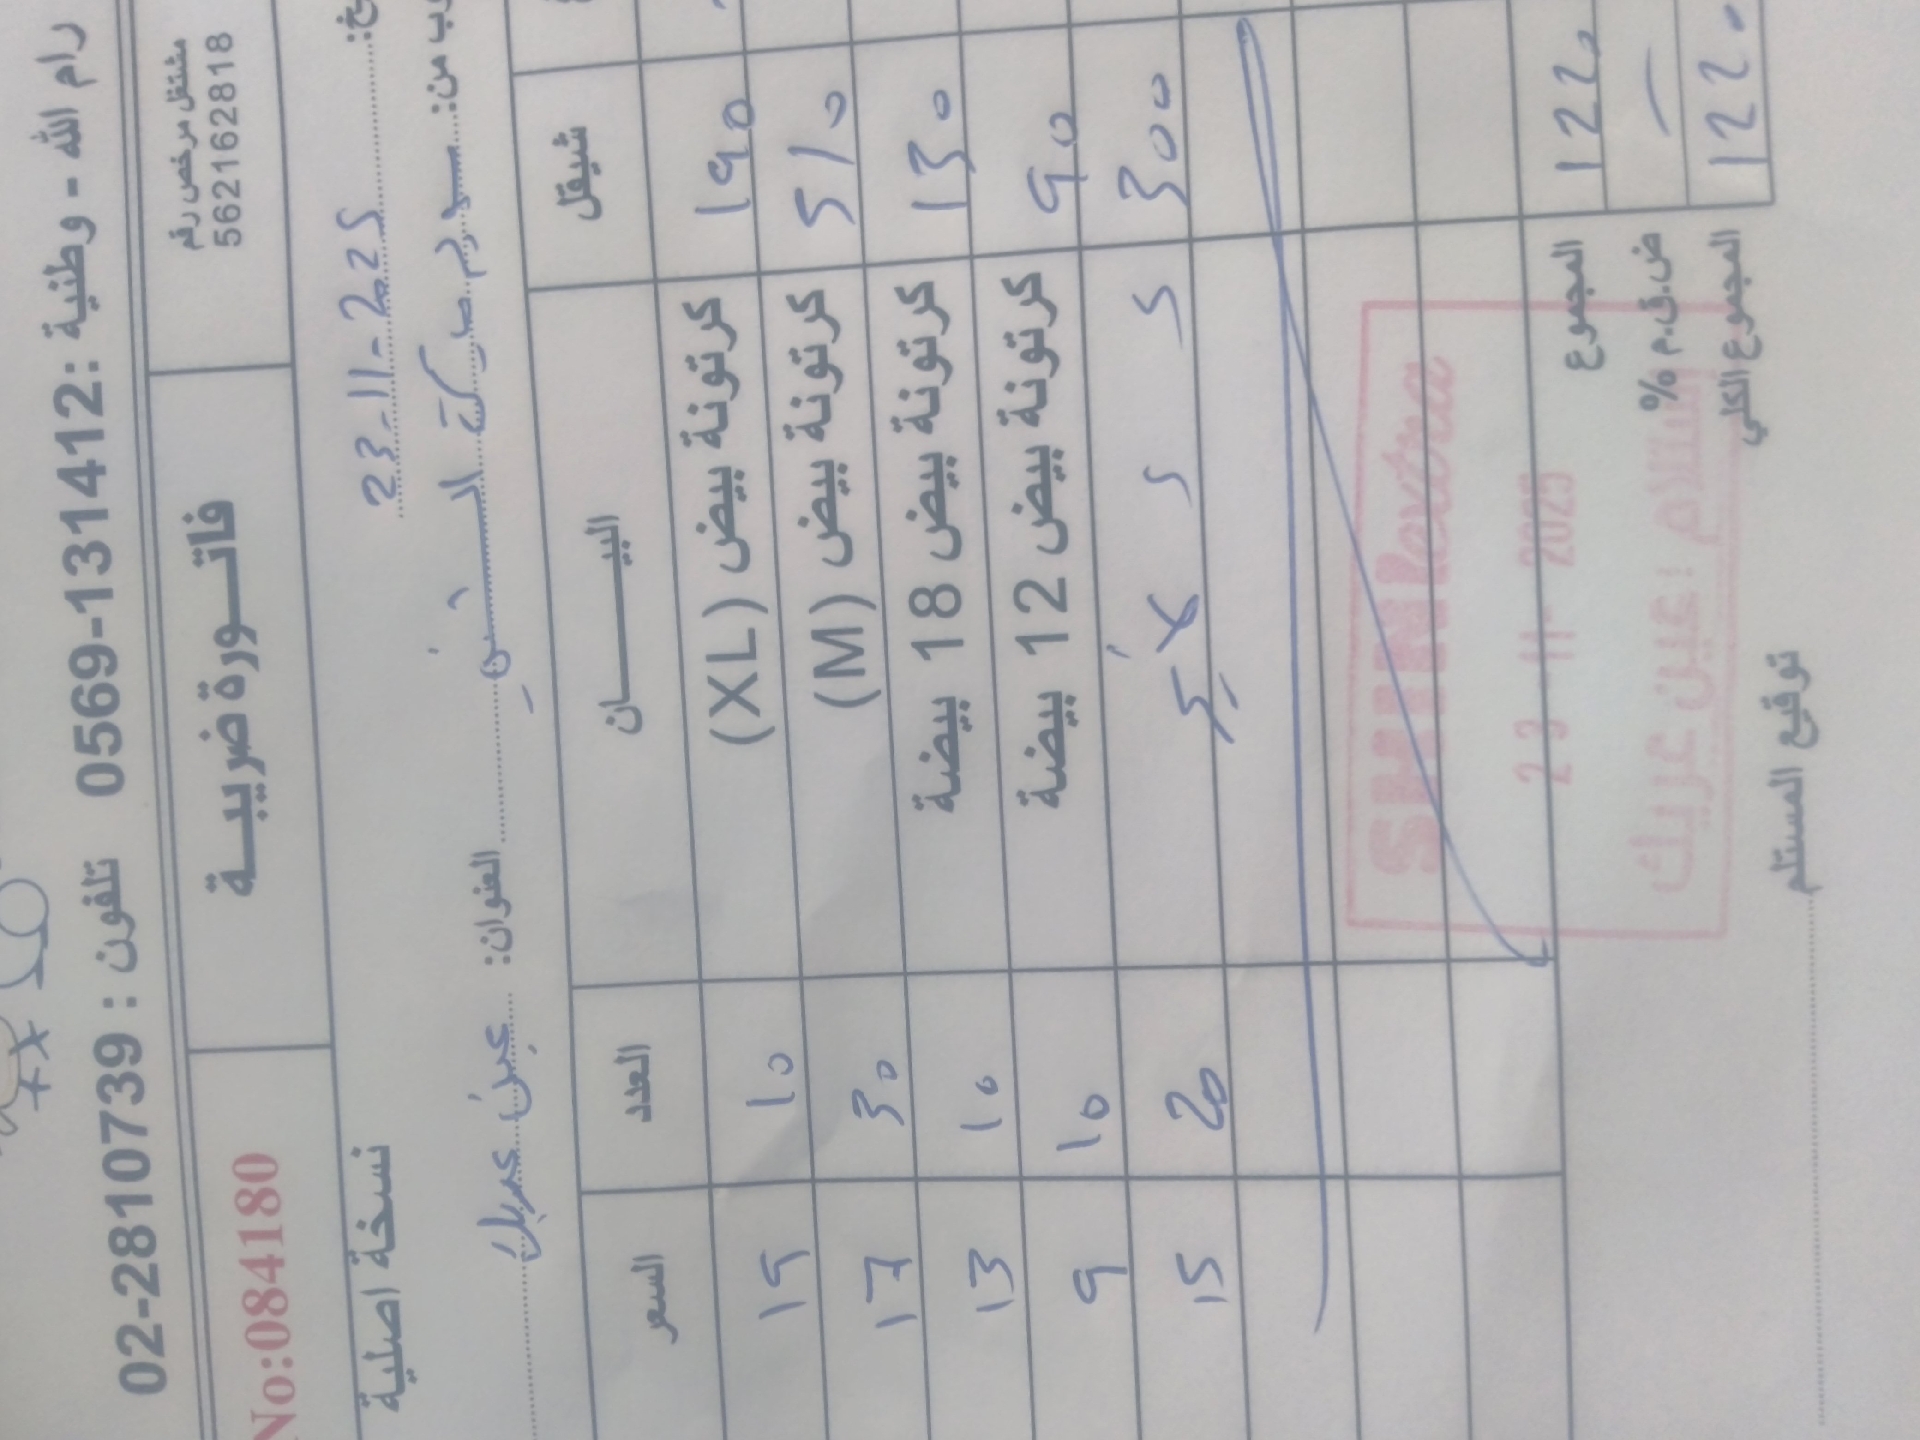 رام الله - وطنية : 0569-131412 تلفون : 02-2810739
مشتغل مرخص رقم
562162818
فاتـــورة ضريبيـــة
No:084180
23-11-2025
نسخة اصلية
من:
العنوان: عين عريك
شيقل البيـــــــان العدد السعر
190 كرتونة بيض (XL) 10 19
510 كرتونة بيض (M) 30 17
130 كرتونة بيض 18 بيضة 10 13
90 كرتونة بيض 12 بيضة 10 9
300 20 15
1220 المجموع
ض.ق.م %
1220 المجموع الكلي
SHINI extra
23 -11- 2025
استلام / عين عريك
توقيع المستلم